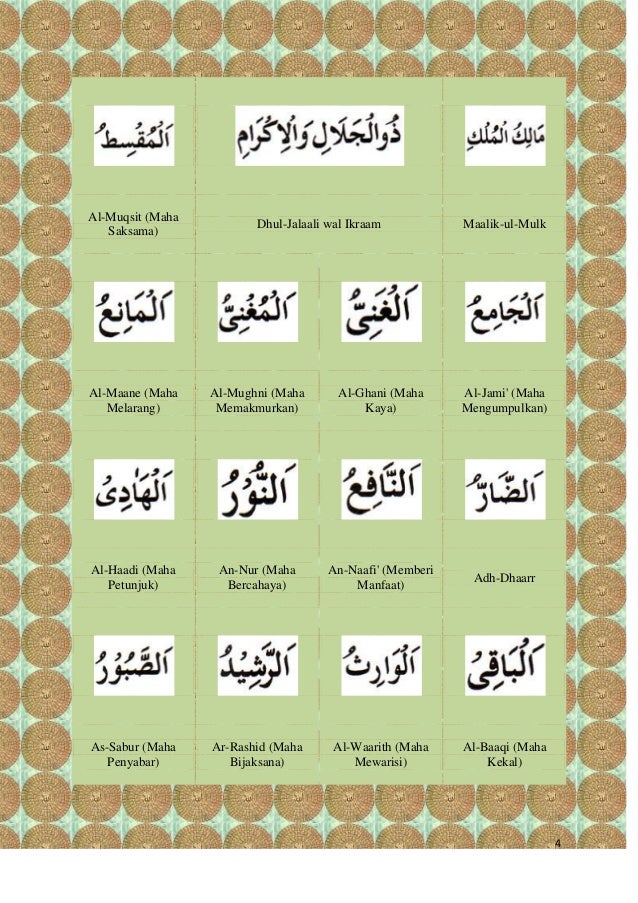 اَلْمُقْسِطُ ذُوالْجَلَالِ وَالْاِكْرَامِ مَالِكُ الْمُلْكِ
Al-Muqsit (Maha
Saksama)
Dhul-Jalaali wal Ikraam
Maalik-ul-Mulk
اَلْمَانِعُ اَلْمُغْنِىُّ اَلْغَنِىُّ اَلْجَامِعُ
Al-Maane (Maha
Melarang)
Al-Mughni (Maha
Memakmurkan)
Al-Ghani (Maha
Kaya)
Al-Jami' (Maha
Mengumpulkan)
اَلْهَادِىُ اَلنُّوْرُ اَلنَّافِعُ اَلضَّارُّ
Al-Haadi (Maha
Petunjuk)
An-Nur (Maha
Bercahaya)
An-Naafi' (Memberi
Manfaat)
Adh-Dhaarr
اَلصَّبُوْرُ اَلرَّشِيْدُ اَلْوَارِثُ اَلْبَاقِىْ
As-Sabur (Maha
Penyabar)
Ar-Rashid (Maha
Bijaksana)
Al-Waarith (Maha
Mewarisi)
Al-Baaqi (Maha
Kekal)
4